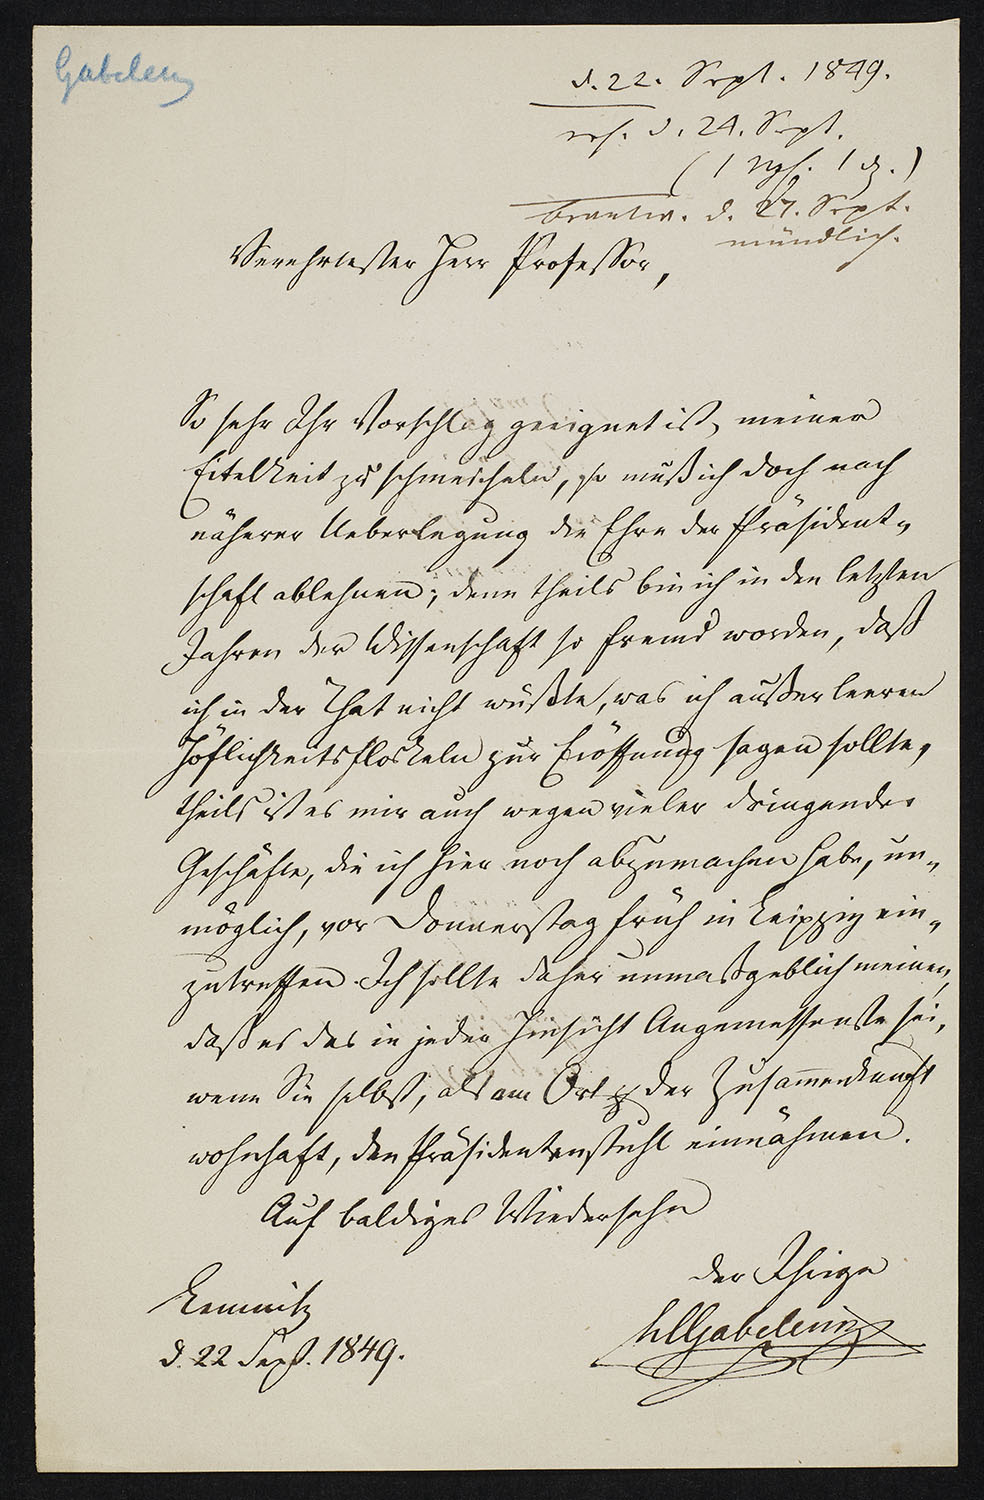 Gabelenz
d. 22. Sept. 1849.
erh. d. 24. Sept.
(1 Ngr. 1 ₰.)
beantw. d. 27. Sept.
mündlich.
Verehrtester Herr Professor,
So sehr Ihr Vorschlag geeignet ist, meiner
Eitelkeit zu schmeicheln, so muß ich doch nach
näherer Ueberlegung die Ehre der Präsident-
schaft ablehnen; denn theils bin ich in den letzten
Jahren der Wissenschaft so fremd worden, daß
ich in der That nicht wüßte, was ich außer leeren
Höflichkeitsfloskeln zur Eröffnung sagen sollte,
theils ist es mir auch wegen vieler dringender
Geschäfte, die ich hier noch abzumachen habe, un-
möglich, vor Donnerstag früh in Leipzig ein-
zutreffen. Ich sollte daher unmaßgeblich meinen,
daß es das in jeder Hinsicht Angemessenste sei,
wenn Sie selbst, als am Ort der Zusammenkunft
wohnhaft, den Präsidentenstuhl einnähmen.
Auf baldiges Wiedersehn
der Ihrige
HCGabelentz
Lemnitz
d. 22 Sept. 1849.